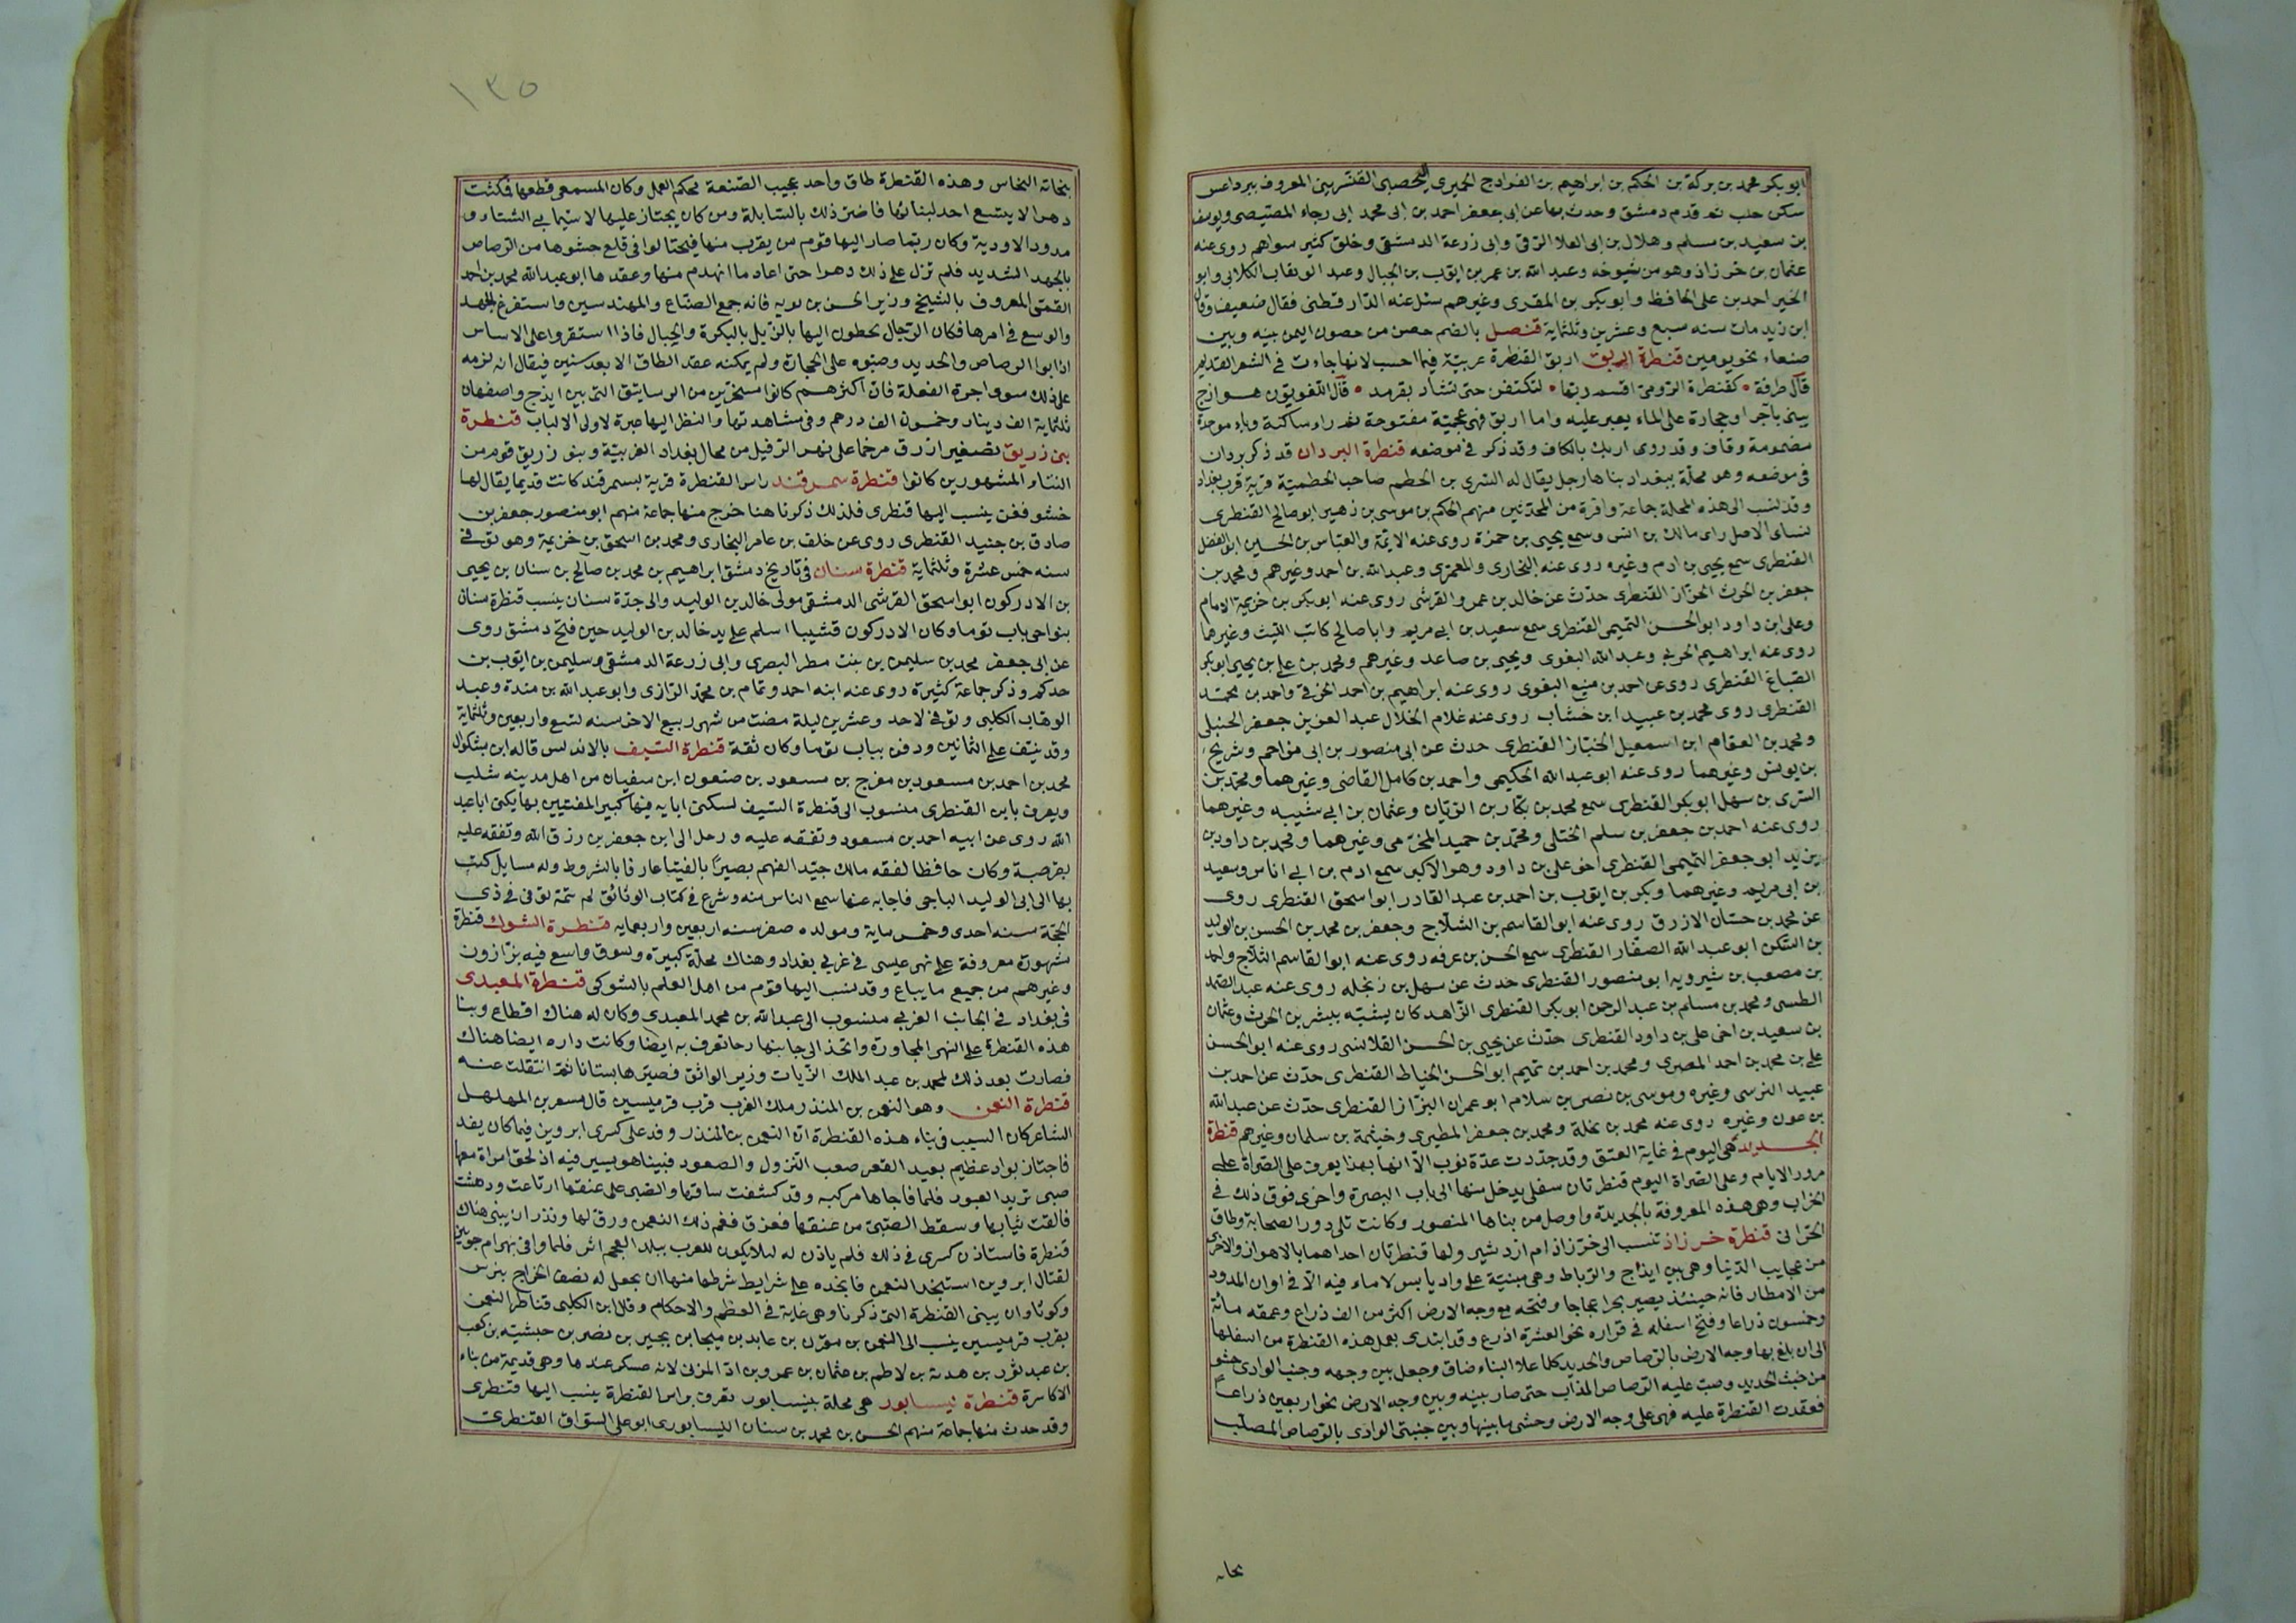 ابو بكر محمد بن بركة بن الحكم بن ابراهيم بن الفرادج الحميرى اليحصبى القنسرينى المعروف ببرداعس
سكن حلب ثم قدم دمشق وحدث بها عن ابى جعفر احمد بن ابى محمد ابى رجاء المصيصى ويوسف
بن سعيد بن مسلم وهلال بن ابى العلا الرقى وابى زرعة الدمشقى وخلق كثير سواهم روى عنه
عثمان بن خرزاذ وهو من شيوخه وعبد الله بن عمر بن ايوب بن الجبال وعبد الوهاب الكلابى وابو
الخير احمد بن على الحافظ وابو بكر بن المقرى وغيرهم سئل عنه الدارقطنى فقال ضعيف وقال
ابن زيد مات سنه سبع وعشرين وثلثماية قنصل بالضم حصن من حصون اليمن بينه وبين
صنعاء نحو يومين قنطرة اربق اربق القنطرة عربية فيما احسب لانها جاءت فى الشعر القديم
قال طرفة كقنطرة الرومى اقسم ربها لتكتنفن حتى تشاد بقرمد قال اللغويون هو ازج
يبنى بآجر او حجارة على الماء يعبر عليه واما اربق فهى عجمية مفتوحة ثم راء ساكنة وباء موحدة
مضمومة وقاف وقد روى اربك بالكاف وقد ذكر فى موضعه قنطرة البردان قد ذكر بردان
فى موضعه وهو محلة ببغداد بناها رجل يقال له السرى بن الحطم صاحب الحطمية قرية قرب بغداد
وقد نسب الى هذه المحلة جماعة وافرة من المحدثين منهم الحكم بن موسى بن زهير ابو صالح القنطرى
نساى الاصل راى مالك بن انس وسمع يحيى بن حمزة روى عنه الائمة والعباس بن الحسين ابو الفضل
القنطرى سمع يحيى بن ادم وغيره روى عنه البخارى والمعمرى وعبد الله بن احمد وغيرهم ومحمد بن
جعفر بن الحرث الخزاز القنطرى حدث عن خالد بن عمرو القرشى روى عنه ابو بكر بن خزيمة الامام
وعلى ابن داود ابو الحسن التميمى القنطرى سمع سعيد بن ابى مريم وابا صالح كاتب الليث وغيرهما
روى عنه ابراهيم الحربى وعبد الله البغوى ويحيى بن صاعد وغيرهم ومحمد بن على بن يحيى ابو بكر
الصباغ القنطرى روى عن احمد بن منيع البغوى روى عنه ابراهيم بن احمد الخرقى واحمد بن محمد
القنطرى روى محمد بن عبيد ابن خشاب روى عنه غلام الخلال عبد العزيز بن جعفر الحنبلى
ومحمد بن العوام ابن اسمعيل الخباز القنطرى حدث عن ابى منصور بن ابى مزاحم وشريح
بن يونس وغيرهما روى عنه ابو عبد الله الحكيمى واحمد بن كامل القاضى وغيرهما ومحمد بن
السرى بن سهل ابو بكر القنطرى سمع محمد بن بكار بن الريان وعثمان بن ابى شيبه وغيرهما
روى عنه احمد بن جعفر بن سلم الختلى ومحمد بن حميد المخرمى وغيرهما ومحمد بن داود بن
يزيد ابو جعفر التميمى القنطرى اخو على بن داود وهو الاكبر سمع ادم بن ابى اناس وسعيد
بن ابى مريم وغيرهما وبكر بن ايوب بن احمد بن عبد القادر ابو اسحق القنطرى روى
عن محمد بن حسان الازرق روى عنه ابو القاسم بن الثلاج وجعفر بن محمد بن الحسن بن الوليد
بن السكن ابو عبد الله الصفار القنطرى سمع الحسن بن عرفه روى عنه ابو القاسم الثلاج واحمد
بن مصعب بن شيرويه ابو منصور القنطرى حدث عن سهل بن زنجله روى عنه عبد الصمد
الطستى ومحمد بن مسلم بن عبد الرحمن ابو بكر القنطرى الزاهد كان يشبه ببشر بن الحرث وعثمان
بن سعيد بن اخى على بن داود القنطرى حدث عن يحيى بن الحسن القلانسى روى عنه ابو الحسن
على بن محمد بن احمد المصرى ومحمد بن احمد بن تميم ابو الحسن الخياط القنطرى حدث عن احمد بن
عبيد النرسى وغيره وموسى بن نصر بن سلام ابو عمران البزاز القنطرى حدث عن عبد الله
بن عون وغيره روى عنه محمد بن مخلة ومحمد بن جعفر المطيرى وخيثمة بن سلمان وغيرهم قنطرة
الجديد هى اليوم فى غاية العتق وقد جددت عدة نوب الا انها بهذا يعرف على الصراة على
مرور الايام وعلى الصراة اليوم قنطرتان سفلى يدخل منها الى باب البصرة واخرى فوق ذلك فى
الخراب وهى هذه المعروفة بالجديدة واوصل من بناها المنصور وكانت تلى دور الصحابة وطاق
الحرانى قنطرة خرزاذ تنسب الى خرزاذ ام ازدشير ولها قنطرتان احداهما بالاهواز والاخرى
من عجايب الدنيا وهى بين ايذاج والرباط وهى مبنية على واد يابس لا ماء فيه الا فى اوان المدود
من الامطار فانه حينئذ يصير بحرا عجاجا وفتحه مع وجه الارض اكثر من الف ذراع وعمقه مائة
وخمسون ذراعا وفتح اسفله فى قراره نحو العشرة اذرع وقد ابتدى بعمل هذه القنطرة من اسفلها
الى ان بلغ بها وجه الارض بالرصاص والحديد كلما علا البناء ضاق وجعل بين وجهه وجنب الوادى حشو
من خبث الحديد وصب عليه الرصاص المذاب حتى صار بينه وبين وجه الارض نحو اربعين ذراعا
فعقدت القنطرة عليه فهى على وجه الارض وحشى ما بينها وبين جنبتى الوادى بالرصاص المصلب
بحاته
١٣٥
بنحاته النحاس وهذه القنطرة طاق واحد عجيب الصنعة محكم العمل وكان المسمعى قطعها فمكثت
دهرا لا يتسع احد لبنائها فاضر ذلك بالسابلة ومن كان يجتاز عليها لا سيما فى الشتاء و
مدود الاودية وكان ربما صار اليها قوم من يقرب منها فيحتالوا فى قلع حشوها من الرصاص
بالجهد الشديد فلم تزل على ذلك دهرا حتى اعاد ما انهدم منها وعقدها ابو عبد الله محمد بن احمد
القمى المعروف بالشيخ وزير الحسن بن بويه فانه جمع الصناع والمهندسين واستفرغ الجهد
والوسع فى امرها فكان الرجال يحطون اليها بالزبيل بالبكرة والحبال فاذا استقروا على الاساس
اذابوا الرصاص والحديد وصبوه على الحجارة ولم يمكنه عقد الطاق الا بعد سنين فيقال انه لزمه
على ذلك سوى اجرة الفعلة فان اكثرهم كانوا مسخرين من الرساتيق التى بين ايذج واصفهان
ثلثماية الف دينار وخمسون الف درهم وفى مشاهدتها والنظر اليها عبرة لاولى الالباب قنطرة
بنى زريق تصغير ازرق مرخما على نهر الرفيل من محال بغداد الغربية وبنو زريق قوم من
التناء المشهورين كانوا قنطرة سمرقند راس القنطرة قرية بسمرقند كانت قديما يقال لها
خشوفغن ينسب اليها قنطرى فلذلك ذكرنا هنا خرج منها جماعة منهم ابو منصور جعفر بن
صادق بن جنيد القنطرى روى عن خلف بن عامر البخارى ومحمد بن اسحق بن خزيمة وهو توفى فى
سنه خمس عشرة وثلثماية قنطرة سنان فى تاريخ دمشق ابراهيم بن محمد بن صالح بن سنان بن يحيى
بن الادركون ابو اسحق القرشى الدمشقى مولى خالد بن الوليد والى جده سنان ينسب قنطرة سنان
بنواحى باب توما وكان الادركون قشيبا اسلم على يد خالد بن الوليد حين فتح دمشق روى
عن ابى جعفر محمد بن سليمن بن بنت مطر البصرى وابى زرعة الدمشقى وسليمن بن ايوب بن
حدكم وذكر جماعة كثيرة روى عنه ابنه احمد وتمام بن محمد الرازى وابو عبد الله بن مندة وعبد
الوهاب الكلبى وتوفى لاحد وعشرين ليلة مضت من شهر ربيع الاخر سنه تسع واربعين وثلثماية
وقد نيف على الثمانين ودفن بباب توما وكان ثقة قنطرة السيف بالاندلس قاله ابن بشكوال
محمد بن احمد بن مسعود بن مفرج بن مسعود بن صنعون ابن سفيان من اهل مدينه شلب
ويعرف بابن القنطرى منسوب الى قنطرة السيف لسكنى ابايه فيها كبير المفتيين بها يكنى ابا عبد
الله روى عن ابيه احمد بن مسعود وتفقه عليه ورحل الى ابن جعفر بن رزق الله وتفقه عليه
بقرطبة وكان حافظا لفقه مالك جيد الفهم بصيرا بالفتيا عارفا بالشروط وله مسايل كتب
بها الى ابى الوليد الباجى فاجابه عنها سمع الناس منه وشرع فى كتاب الوثائق لم يتمة توفى فى ذى
الحجة سنه احدى وخمس ماية ومولده صفر سنه اربعين واربعمايه قنطرة الشوك قنطرة
مشهورة معروفة على نهر عيسى فى غربى بغداد وهناك محلة كبيرة وسوق واسع فيه بزازون
وغيرهم من جميع ما يباع وقد نسب اليها قوم من اهل العلم بالشوكى قنطرة المعبدى
فى بغداد فى الجانب الغربى منسوب الى عبد الله بن محمد المعبدى وكان له هناك اقطاع وبنا
هذه القنطرة على النهر المجاورة واتخذ الى جانبها رحا تعرف به ايضا وكانت داره ايضا هناك
فصارت بعد ذلك لمحمد بن عبد الملك الزيات وزير الواثق فصيرها بستانا ثم انتقلت عنه
قنطرة النعمن وهو النعمن بن المنذر ملك العرب قرب قرميسين قال مسعر بن المهلهل
الشاعر كان السبب فى بناء هذه القنطرة ان النعمن بن المنذر وفد على كسرى ابرويز فيما كان يفد
فاجتاز بواد عظيم بعيد القعر صعب النزول والصعود فبينا هو يسير فيه اذ لحق امراة معها
صبى تريد العبور فلما فاجاها مركبه وقد كشفت ساقها والصبى على عنقها ارتاعت ودهشت
فالقت ثيابها وسقط الصبى من عنقها فغرق فغم ذلك النعمن ورق لها ونذر ان يبنى هناك
قنطرة فاستاذن كسرى فى ذلك فلم ياذن له ليلا يكون للعرب ببلد العجم اثر فلما وافى بهرام جوبين
لقتال ابرويز استنجد النعمن فانجده على شرايط شرطها منها ان يجعل له نصف الخراج ببرس
وكوثا وان يبنى القنطرة التى ذكرنا وهى غاية فى العظم والاحكام وقال ابن الكلبى قناطر النعمن
بقرب قرميسين ينسب الى النعمن بن مقرن بن عايد بن ميجا بن بجير بن نصر بن حبشيه بن كعب
بن عبد ثور بن هدمة بن لاطم بن عثمان بن عمرو بن اد المزنى لانه عسكر عندها وهى قديمة من بناء
الاكاسرة قنطرة نيسابور هى محلة بنيسابور تعرف براس القنطرة ينسب اليها قنطرى
وقد حدث منها جماعة منهم الحسن بن محمد بن سنان النيسابورى ابو على السواق القنطرى